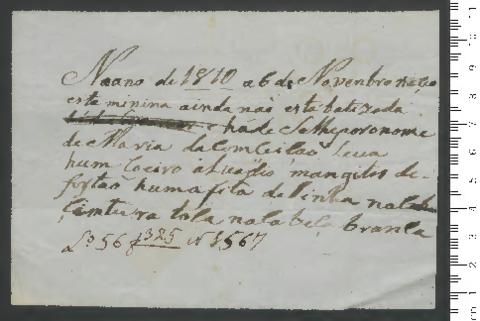 No ano de 1810 a 6 de Novenbro naceo
esta minina ainda nai esta batizada
hade se lhe por o nome
de Maria da Comceicaõ Leva
hum coeiro mangitos de
fustaõ huma fita de linha na
Sintura tola na Cabeça branca
Lº 56 f 325 Nº 1567